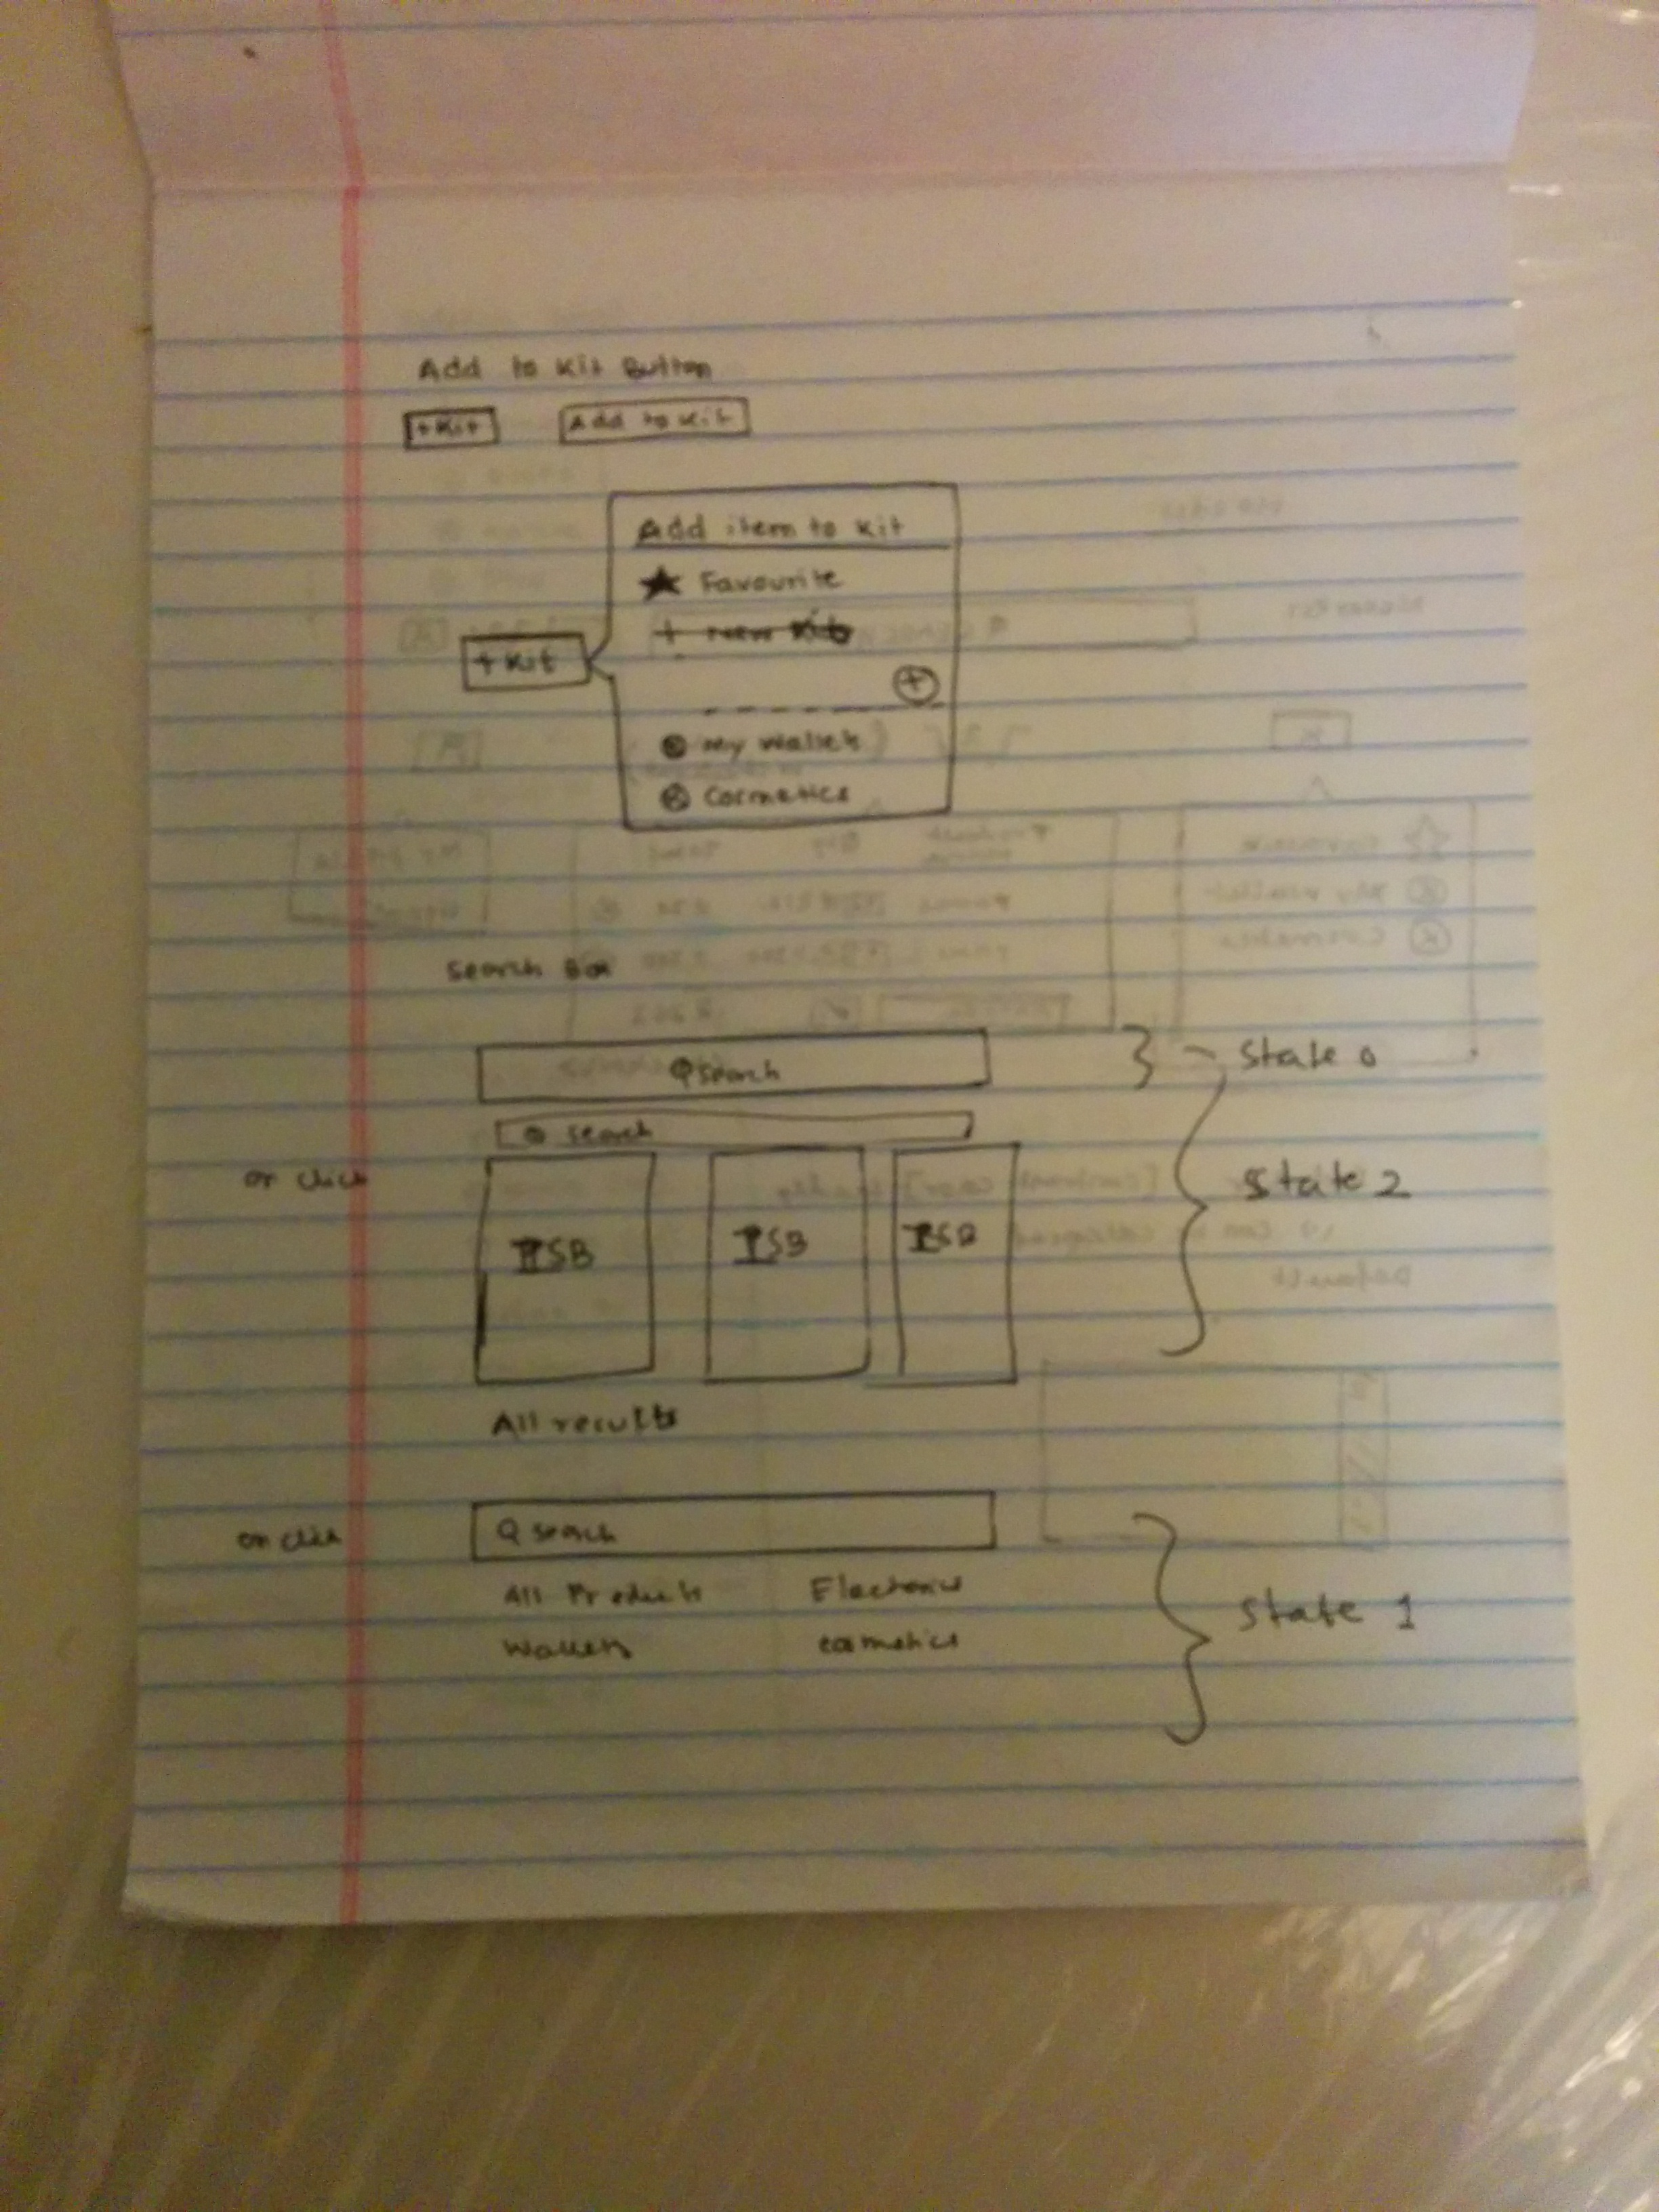 Add to Kit Button
+Kit Add to Kit
Add item to Kit
★ Favourite
+ New Kit
+ Kit
+
My Wallets
Cosmetics
Search Box
Search
State 0
Search
on click
State 2
ISB ISB
All results
on click
Search
All Products Electronics
State 1
Wallets cosmetics